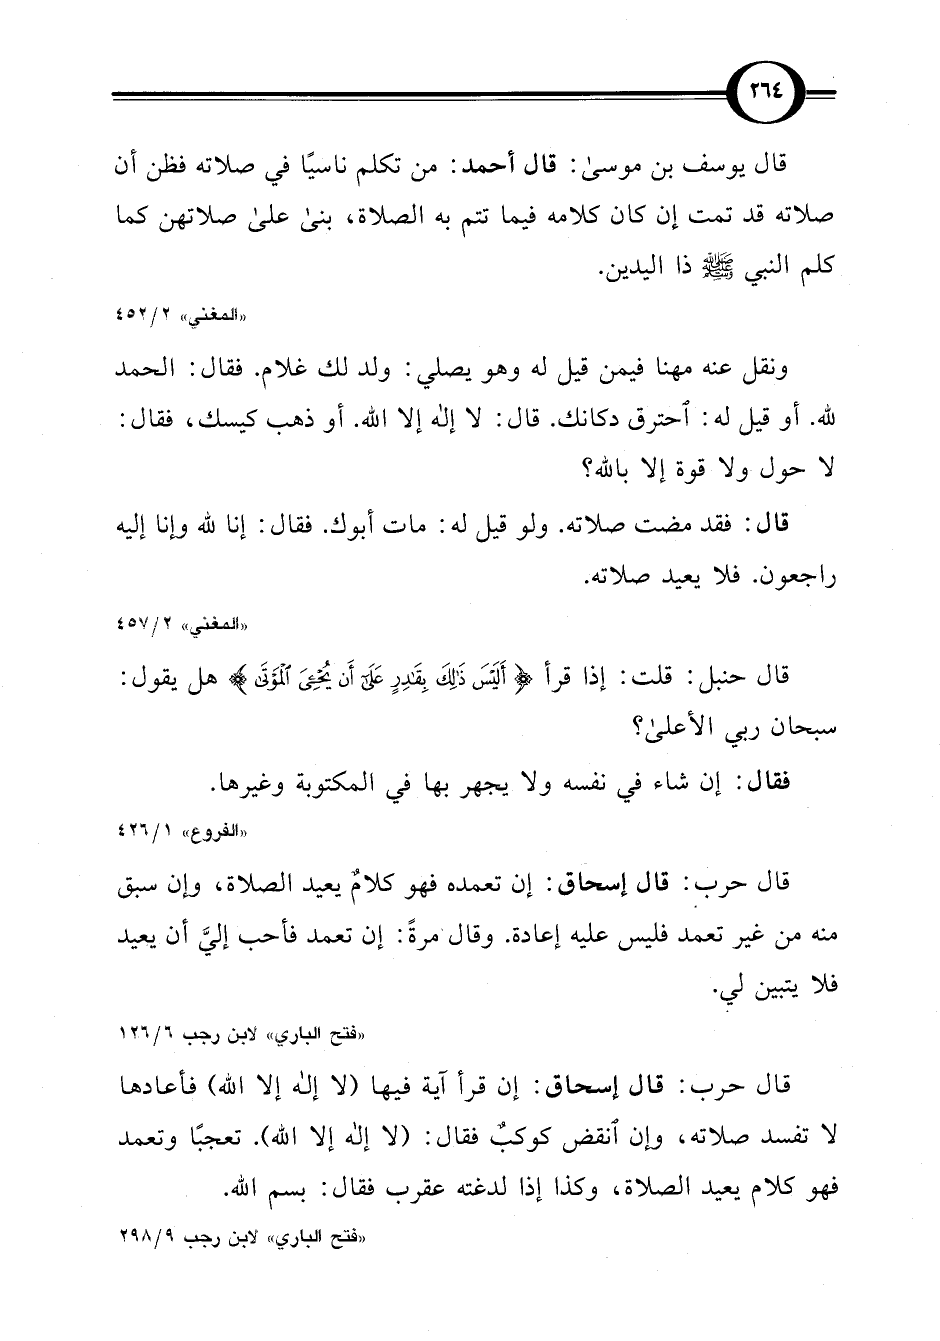 ٢٦٤
قال يوسف بن موسىٰ: قال أحمد: من تكلم ناسيًا في صلاته فظن أن
صلاته قد تمت إن كان كلامه فيما تتم به الصلاة، بنىٰ علىٰ صلاتهن كما
كلم النبي ﷺ ذا اليدين.
«المغني» ٢/ ٤٥٢
ونقل عنه مهنا فيمن قيل له وهو يصلي: ولد لك غلام. فقال: الحمد
لله. أو قيل له: ٱحترق دكانك. قال: لا إلٰه إلا الله. أو ذهب كيسك، فقال:
لا حول ولا قوة إلا بالله؟
قال: فقد مضت صلاته. ولو قيل له: مات أبوك. فقال: إنا لله وإنا إليه
راجعون. فلا يعيد صلاته.
«المغني» ٢/ ٤٥٧
قال حنبل: قلت: إذا قرأ ﴿أَلَيْسَ ذَٰلِكَ بِقَٰدِرٍ عَلَىٰٓ أَن يُحْـِۧىَ ٱلْمَوْتَىٰ﴾ هل يقول:
سبحان ربي الأعلىٰ؟
فقال: إن شاء في نفسه ولا يجهر بها في المكتوبة وغيرها.
«الفروع» ١/ ٤٢٦
قال حرب: قال إسحاق: إن تعمده فهو كلامٌ يعيد الصلاة، وإن سبق
منه من غير تعمد فليس عليه إعادة. وقال مرةً: إن تعمد فأحب إليَّ أن يعيد
فلا يتبين لي.
«فتح الباري» لابن رجب ٦/ ١٢٦
قال حرب: قال إسحاق: إن قرأ آية فيها (لا إلٰه إلا الله) فأعادها
لا تفسد صلاته، وإن ٱنقض كوكبٌ فقال: (لا إلٰه إلا الله). تعجبًا وتعمد
فهو كلام يعيد الصلاة، وكذا إذا لدغته عقرب فقال: بسم الله.
«فتح الباري» لابن رجب ٩/ ٢٩٨